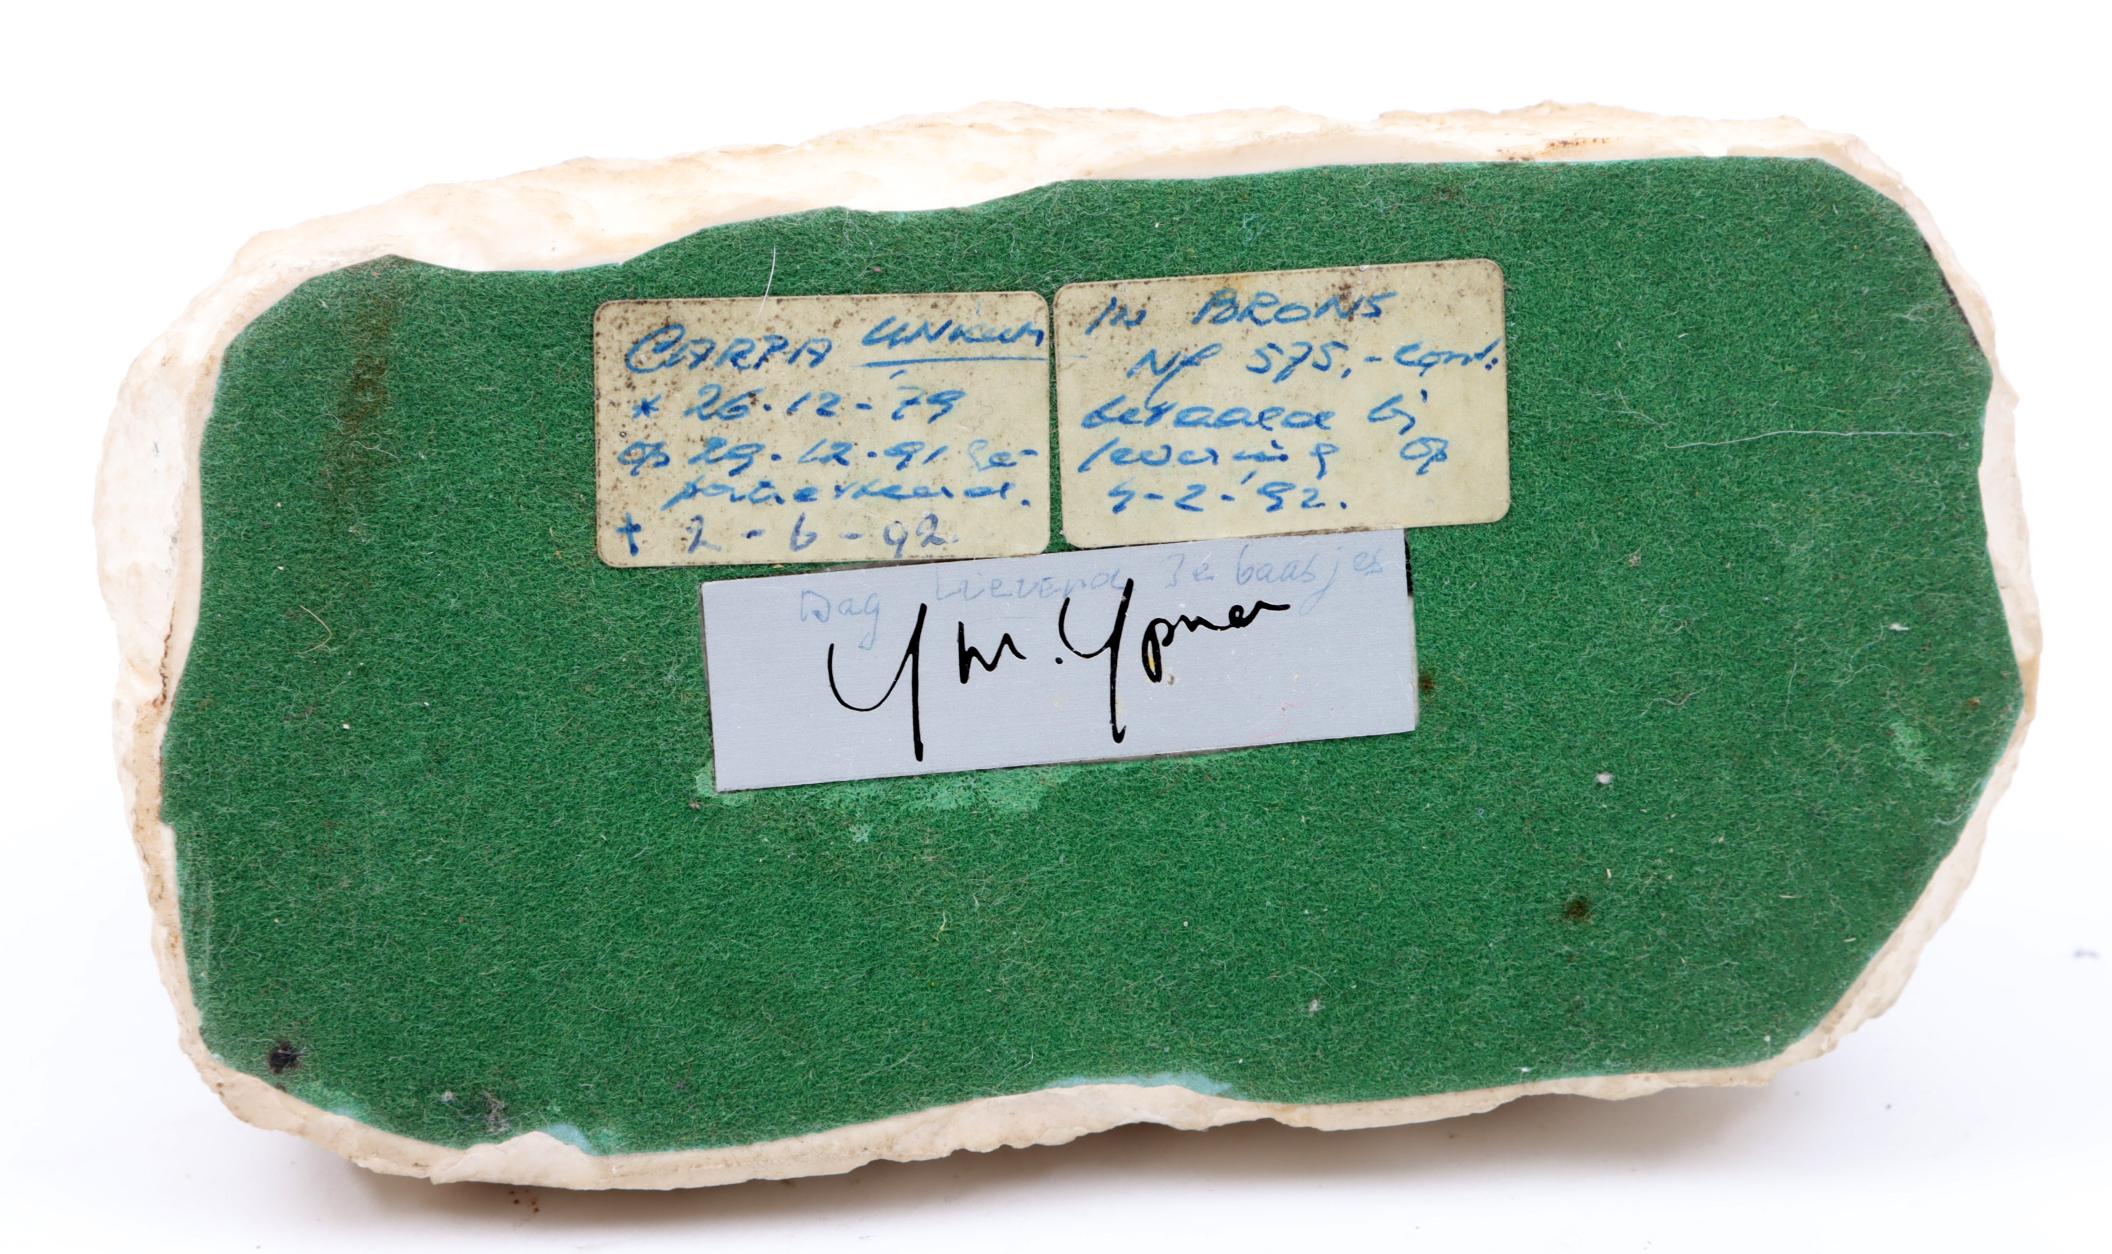 CARPA UNicum
* 26-12-'79
op 29-12-91 ge-
portretteerd.
† 2-6-92.
IN BRONS
Nf 575,- Cont.
betaald bij
levering op
4-2-'92.
Dag Lieverd Je baasjes
Y M. Ypma